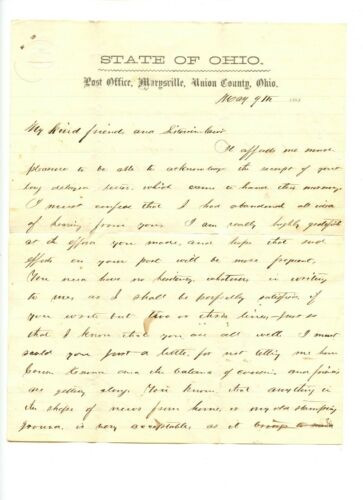 STATE OF OHIO.
Post Office, Marysville, Union County, Ohio.
May 9th 18
My Kind friend and Sister-in-law
It affords me much
pleasure to be able to acknowledge the receipt of your
long delayed letter, which came to hand this morning
I must confess that I had abandoned all idea
of hearing from you. I am really highly gratified
at the effort you made, and hope that such
efforts on your part will be more frequent.
You need have no hesitancy, whatever in writing
to me, as I shall be perfectly satisfied if
you write but two or three lines—just so
that I know that you are all well. I must
scold you just a little for not telling me how
and the balance of cousins, and friends
are getting along. You know, that anything in
the shape of news from home, or my old stamping
ground, is very acceptable, as it